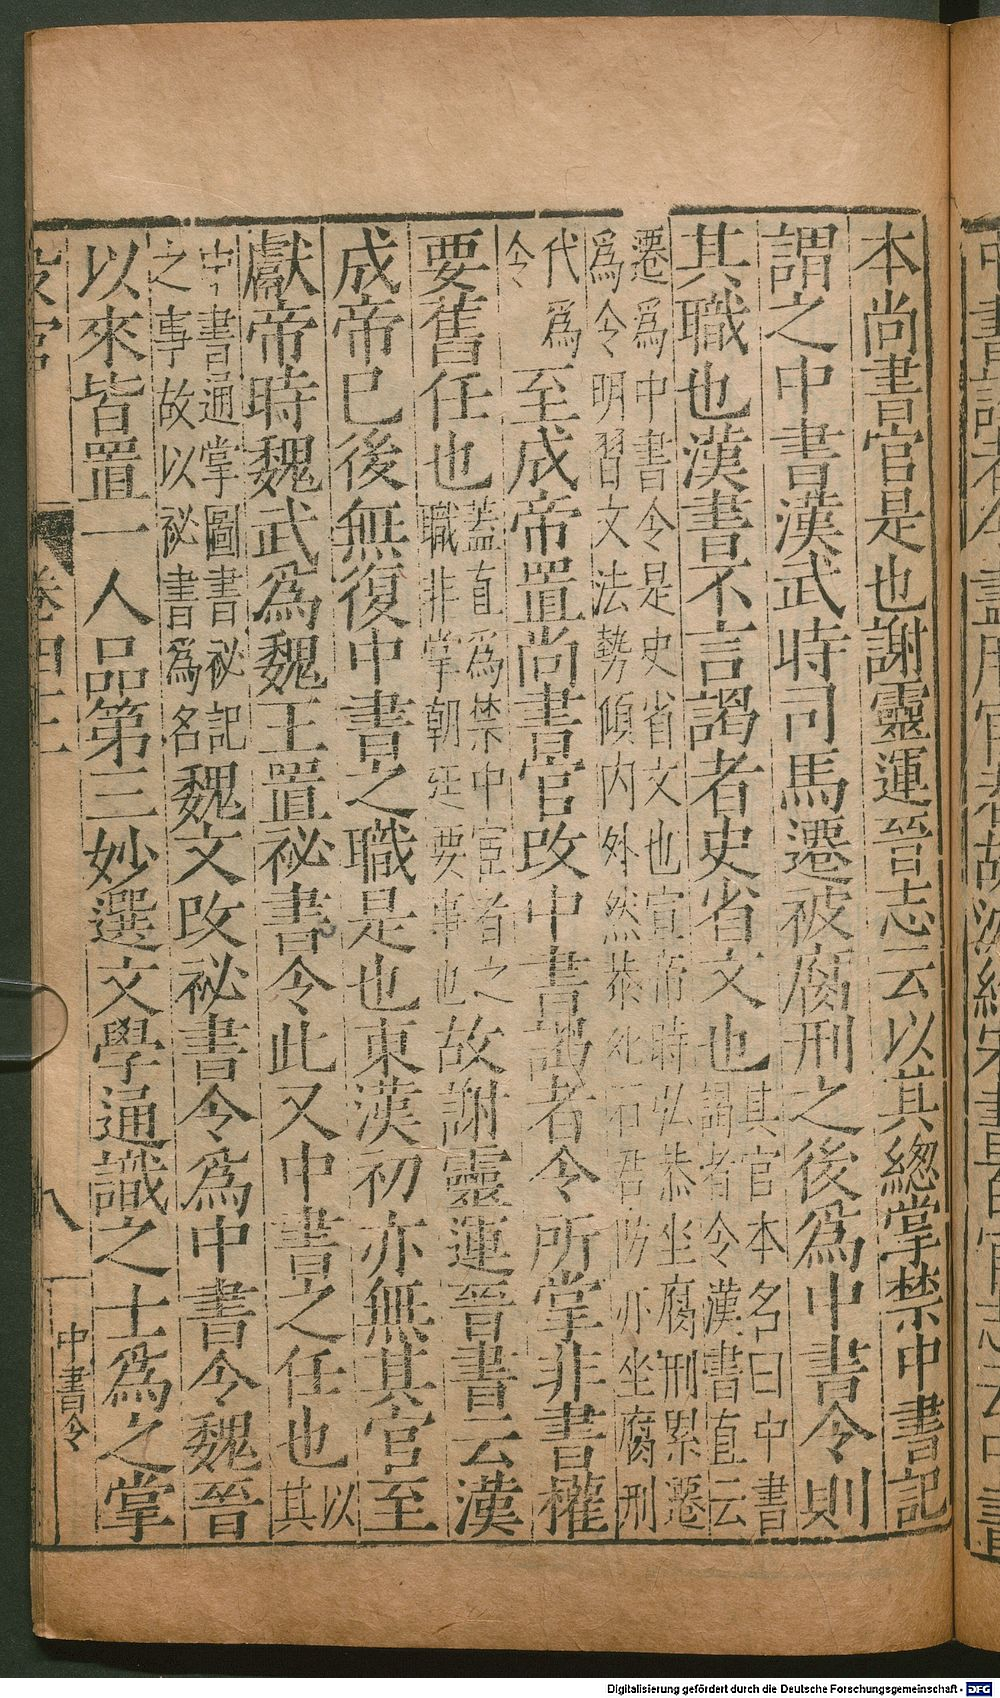 本尚書官是也謝靈運晉志云以其總掌禁中書記
謂之中書漢武時司馬遷被腐刑之後爲中書令則
其職也漢書不言謁者史省文也其官本名曰中書
謁者令漢書直云
遷爲中書令是史省文也宣帝時弘恭坐腐刑累遷
爲令明習文法勢傾内外然恭死石君防亦坐腐刑
代爲
令
至成帝置尚書官改中書謁者令所掌非書權
要舊任也蓋直爲禁中宦者之
職非掌朝廷要事也
故謝靈運晉書云漢
成帝已後無復中書之職是也東漢初亦無其官至
獻帝時魏武爲魏王置祕書令此又中書之任也以
其
中書通掌圖書祕記
之事故以祕書爲名
魏文改祕書令爲中書令魏晉
以來皆置一人品第三妙選文學通識之士爲之掌
設官
卷四
八
中書令
Digitalisierung gefördert durch die Deutsche Forschungsgemeinschaft - DFG